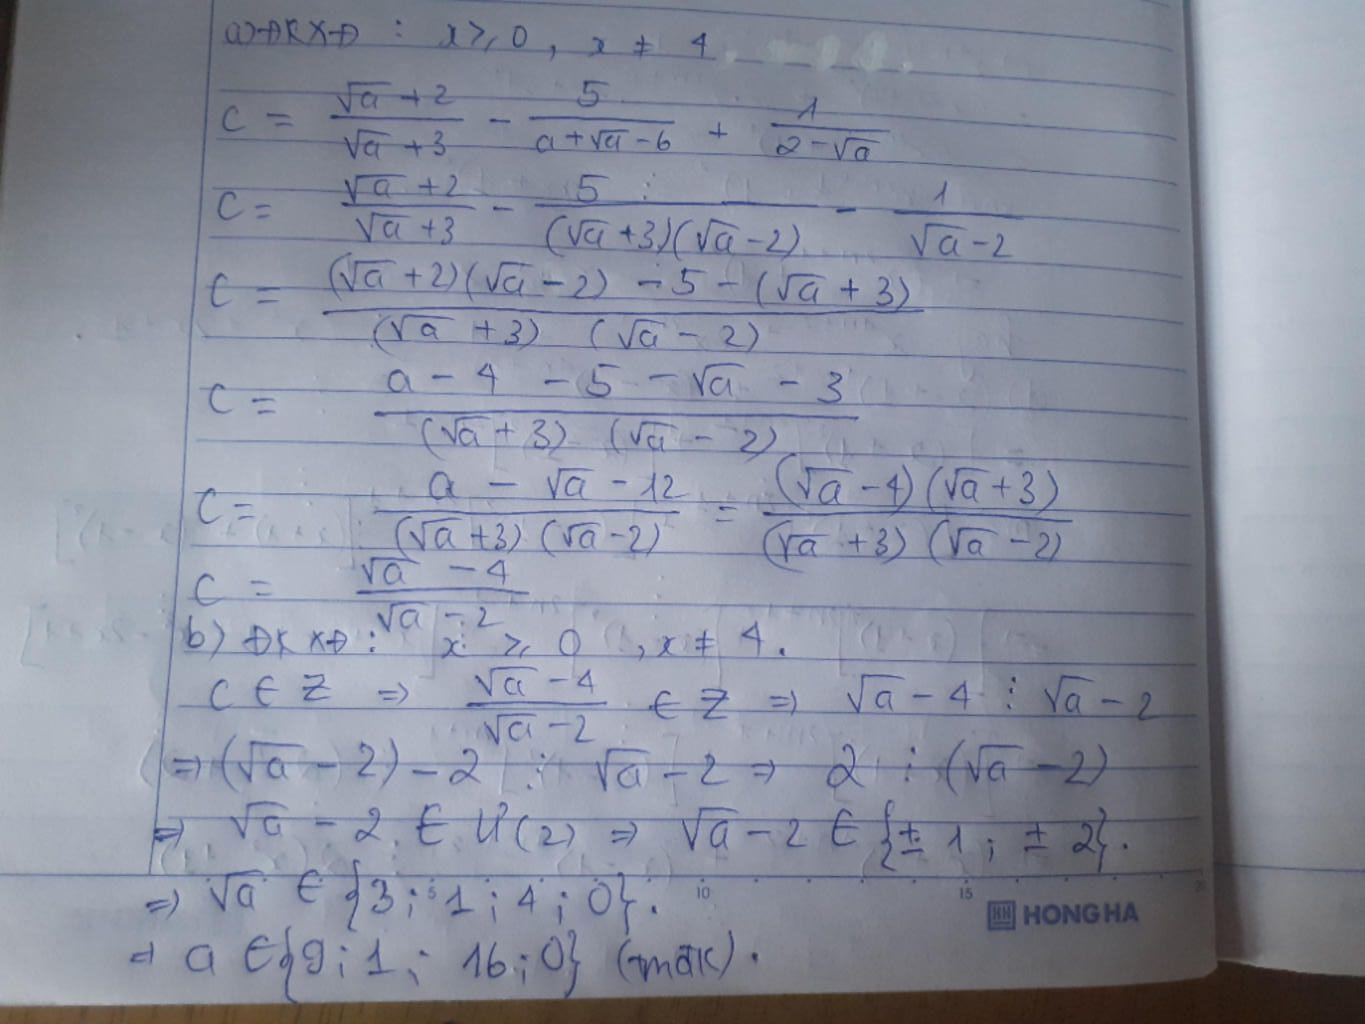 a) ĐKXĐ : x ⩾ 0 , x ≠ 4
C = (√a + 2)/(√a + 3) - 5/(a + √a - 6) + 1/(2 - √a)
C = (√a + 2)/(√a + 3) - 5/((√a + 3)(√a - 2)) - 1/(√a - 2)
C = ((√a + 2)(√a - 2) - 5 - (√a + 3))/((√a + 3)(√a - 2))
C = (a - 4 - 5 - √a - 3)/((√a + 3)(√a - 2))
C = (a - √a - 12)/((√a + 3)(√a - 2)) = ((√a - 4)(√a + 3))/((√a + 3)(√a - 2))
C = (√a - 4)/(√a - 2)
b) ĐKXĐ : x ⩾ 0 , x ≠ 4.
C ∈ Z ⇒ (√a - 4)/(√a - 2) ∈ Z ⇒ √a - 4 ⋮ √a - 2
⇒ (√a - 2) - 2 ⋮ √a - 2 ⇒ 2 ⋮ (√a - 2)
⇒ √a - 2 ∈ Ư(2) ⇒ √a - 2 ∈ {± 1 ; ± 2}.
⇒ √a ∈ {3 ; 1 ; 4 ; 0}.
5 10 15 20
HH HONG HA
⇒ a ∈ {9 ; 1 ; 16 ; 0} (tmđk).